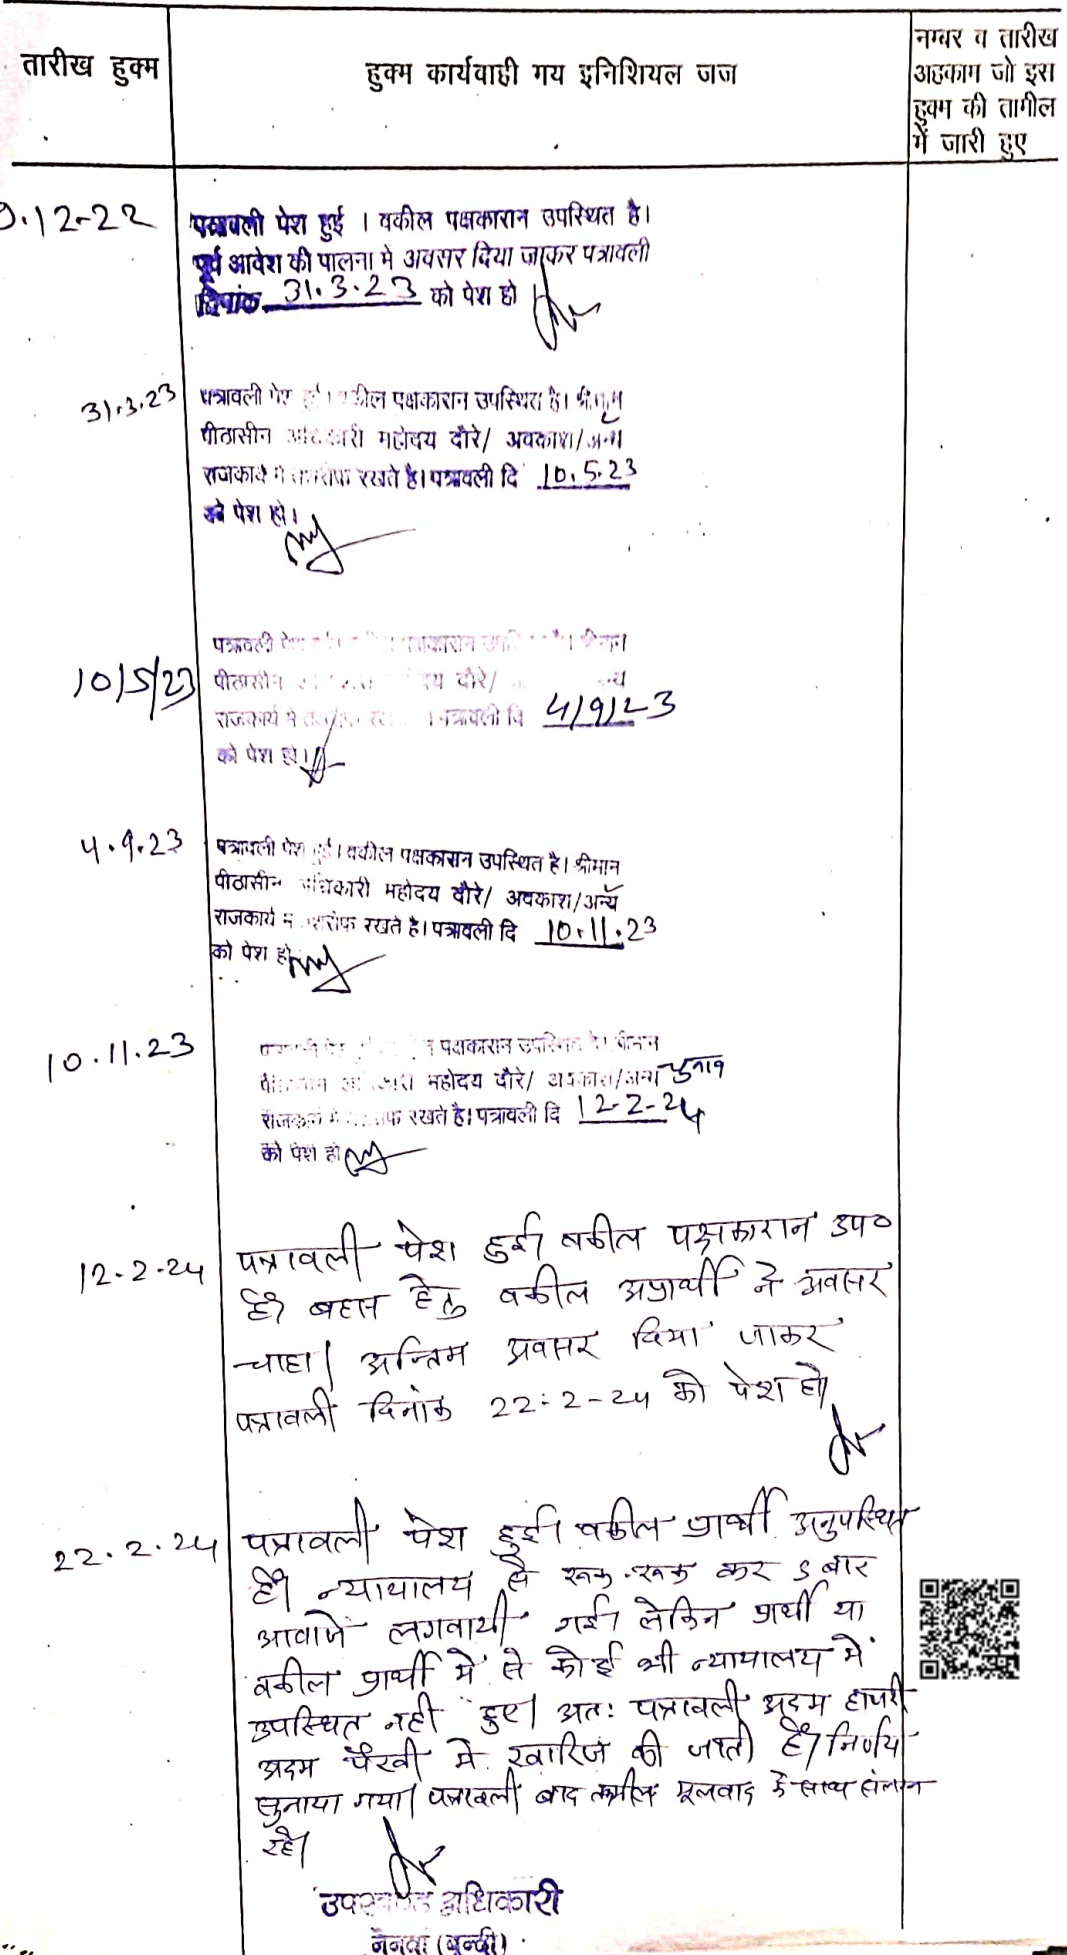 तारीख हुक्म
हुक्म कार्यवाही गय इनिशियल जज
नम्बर व तारीख
अहकाम जो इस
हुक्म की तामील
में जारी हुए
9.12-22
पत्रावली पेश हुई । वकील पक्षकारान उपस्थित है।
पूर्व आदेश की पालना मे अवसर दिया जाकर पत्रावली
दिनांक 31.3.23 को पेश हो
31.3.23
पत्रावली पेश हुई । वकील पक्षकारान उपस्थित है। श्रीमान
पीठासीन अधिकारी महोदय दौरे/ अवकाश/अन्य
राजकार्य मे तशरीफ रखते है। पत्रावली दि 10.5.23
को पेश हो।
10/5/23
पत्रावली पेश हुई। वकील पक्षकारान उपस्थित है। श्रीमान
पीठासीन दौरे/ अन्य
राजकार्य मे तशरीफ पत्रावली दि 4/9/23
को पेश हो।
4.9.23
पत्रावली पेश हुई। वकील पक्षकारान उपस्थित है। श्रीमान
पीठासीन अधिकारी महोदय दौरे/ अवकाश/अन्य
राजकार्य मे तशरीफ रखते है। पत्रावली दि 10.11.23
को पेश हो
10.11.23
पक्षकारान उपस्थित है। श्रीमान
पीठासीन अधिकारी महोदय दौरे/ अवकाश/अन्य चुनाव
राजकार्य मे तशरीफ रखते है। पत्रावली दि 12-2-24
को पेश हो
12.2.24
पत्रावली पेश हुई। वकील पक्षकारान उप०
है। बहस हेतु वकील अप्रार्थी ने अवसर
चाहा। अन्तिम अवसर दिया जाकर
पत्रावली दिनांक 22-2-24 को पेश हो।
22.2.24
पत्रावली पेश हुई। वकील प्रार्थी अनुपस्थित
है। न्यायालय से रूक-रूक कर 5 बार
आवाजें लगवायी गई। लेकिन प्रार्थी या
वकील प्रार्थी में से कोई भी न्यायालय में
उपस्थित नही हुए। अतः पत्रावली अदम हाजरी
अदम पैरवी मे खारिज की जाती है। निर्णय
सुनाया गया। पत्रावली बाद तकमील मूलवाद के साथ संलग्न
रहे।
उपखण्ड अधिकारी
नैनवां (बून्दी)